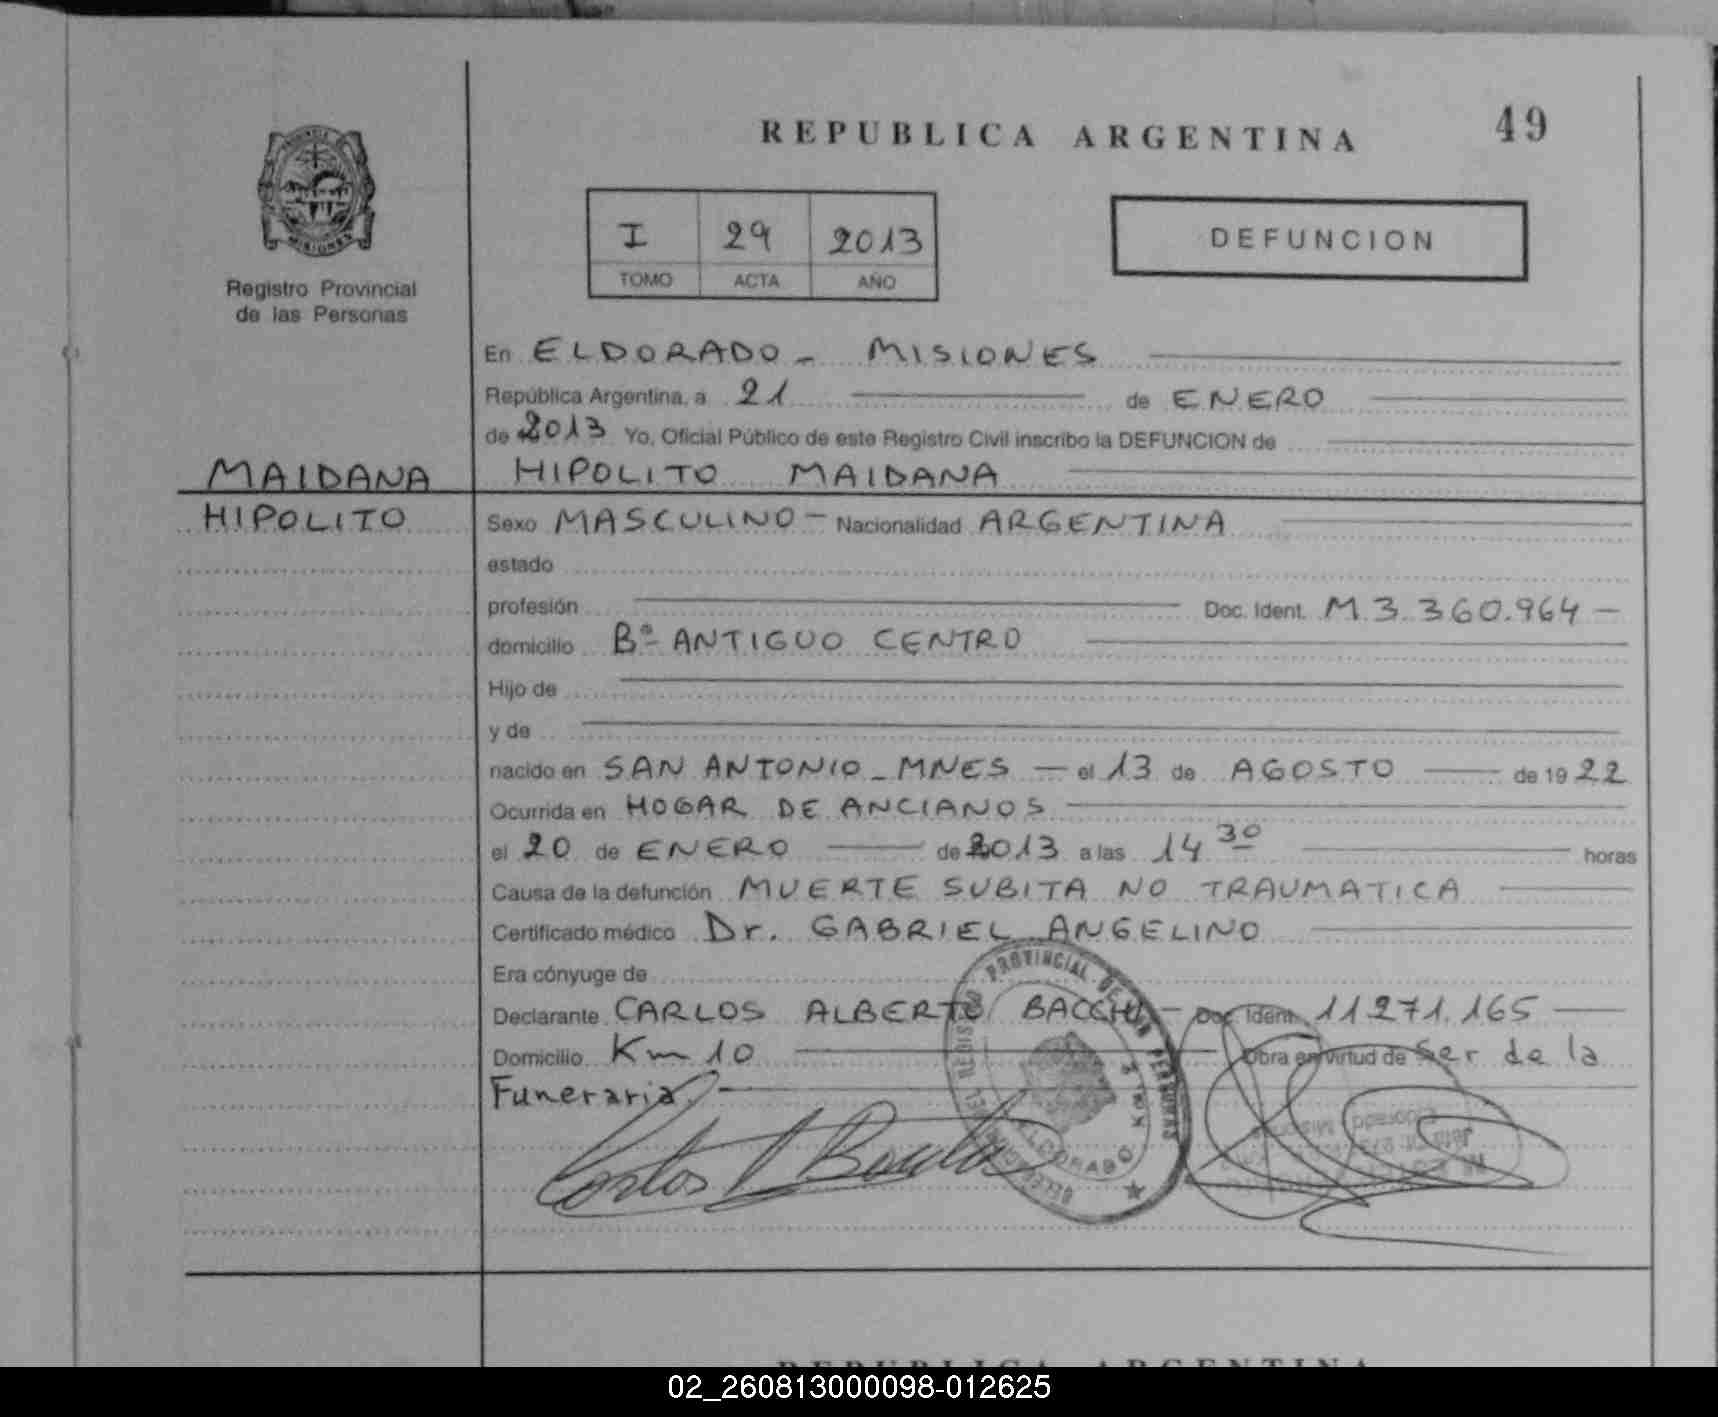 REPUBLICA ARGENTINA 49
MISIONES
Registro Provincial
de las Personas
I 29 2013
TOMO ACTA AÑO
DEFUNCION
En ELDORADO - MISIONES
República Argentina, a 21 de ENERO
de 2013 Yo, Oficial Público de este Registro Civil inscribo la DEFUNCION de
MAIDANA
HIPOLITO
HIPOLITO MAIDANA
Sexo MASCULINO - Nacionalidad ARGENTINA
estado
profesión Doc. Ident. M 3.360.964 -
domicilio Bº ANTIGUO CENTRO
Hijo de
y de
nacido en SAN ANTONIO - MNES - el 13 de AGOSTO de 19 22
Ocurrida en HOGAR DE ANCIANOS
el 20 de ENERO de 2013 a las 14 30 horas
Causa de la defunción MUERTE SUBITA NO TRAUMATICA
Certificado médico Dr. GABRIEL ANGELINO
Era cónyuge de
Declarante CARLOS ALBERTO Doc. Ident. 11.271.165
Domicilio Km 10 Obra en virtud de Ser de la
Funeraria. -
PROVINCIAL DE LAS PERSONAS
ELDORADO
REPUBLICA ARGENTINA
02_260813000098-012625